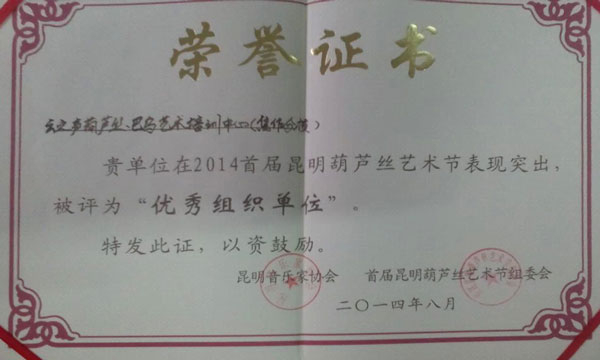 荣誉证书
云之声葫芦丝、巴乌艺术培训中心(焦作分校)
贵单位在2014首届昆明葫芦丝艺术节表现突出，
被评为“优秀组织单位”。
特发此证，以资鼓励。
昆明音乐家协会 首届昆明葫芦丝艺术节组委会
二〇一四年八月